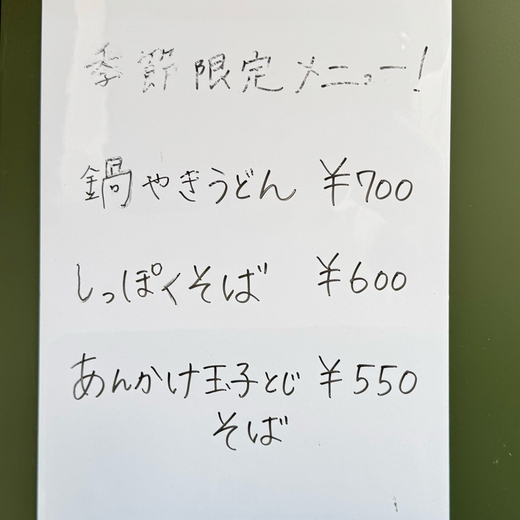 季節限定メニュー!
鍋やきうどん ¥700
しっぽくそば ¥600
あんかけ玉子とじ ¥550
そば